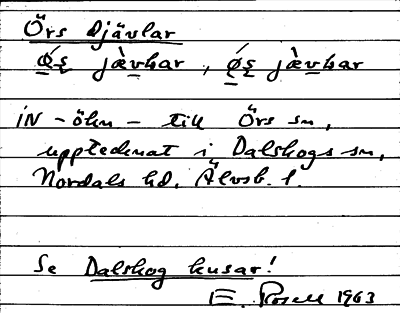 Örs Djävlar
jàvḷar, jàvḷar
IN-ökn - till Örs sn,
upptecknat i Dalskogs sn,
Nordals hd, Älvsb. l.
Se Dalskog kusar!
E. Rosell 1963